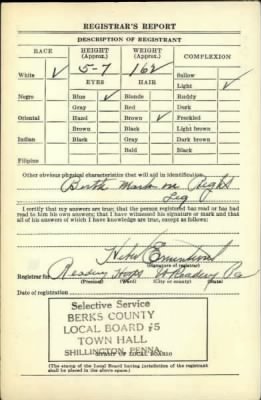 REGISTRAR'S REPORT
DESCRIPTION OF REGISTRANT
RACE HEIGHT (Approx.) WEIGHT (Approx.) COMPLEXION
White ✓ 5-7 162 Sallow
EYES HAIR Light ✓
Negro Blue ✓ Blonde Ruddy
Gray Red Dark
Oriental Hazel Brown ✓ Freckled
Brown Black Light brown
Indian Black Gray Dark brown
Bald Black
Filipino
Other obvious physical characteristics that will aid in identification
Birth Mark on Right
Leg
I certify that my answers are true; that the person registered has read or has had
read to him his own answers; that I have witnessed his signature or mark and that
all of his answers of which I have knowledge are true, except as follows:
(Signature of registrar)
Registrar for Reading Pa
(Precinct) (Ward) (City or county) (State)
Date of registration
Selective Service
BERKS COUNTY
LOCAL BOARD #5
TOWN HALL
SHILLINGTON, PENNA.
(STAMP OF LOCAL BOARD)
(The stamp of the Local Board having jurisdiction of the registrant
shall be placed in the above space.)